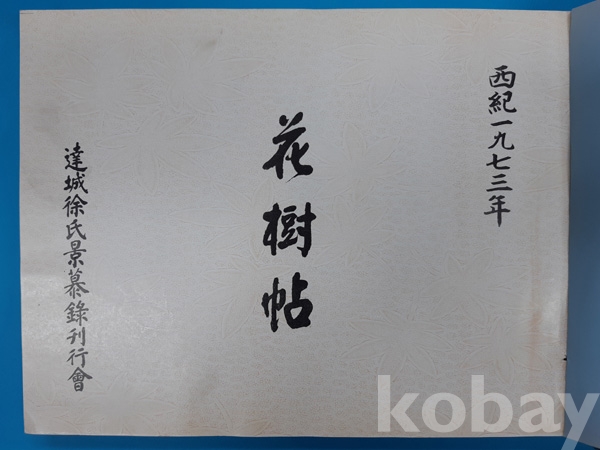 西紀一九七三年
花樹帖
達城徐氏景慕錄刊行會
kobay